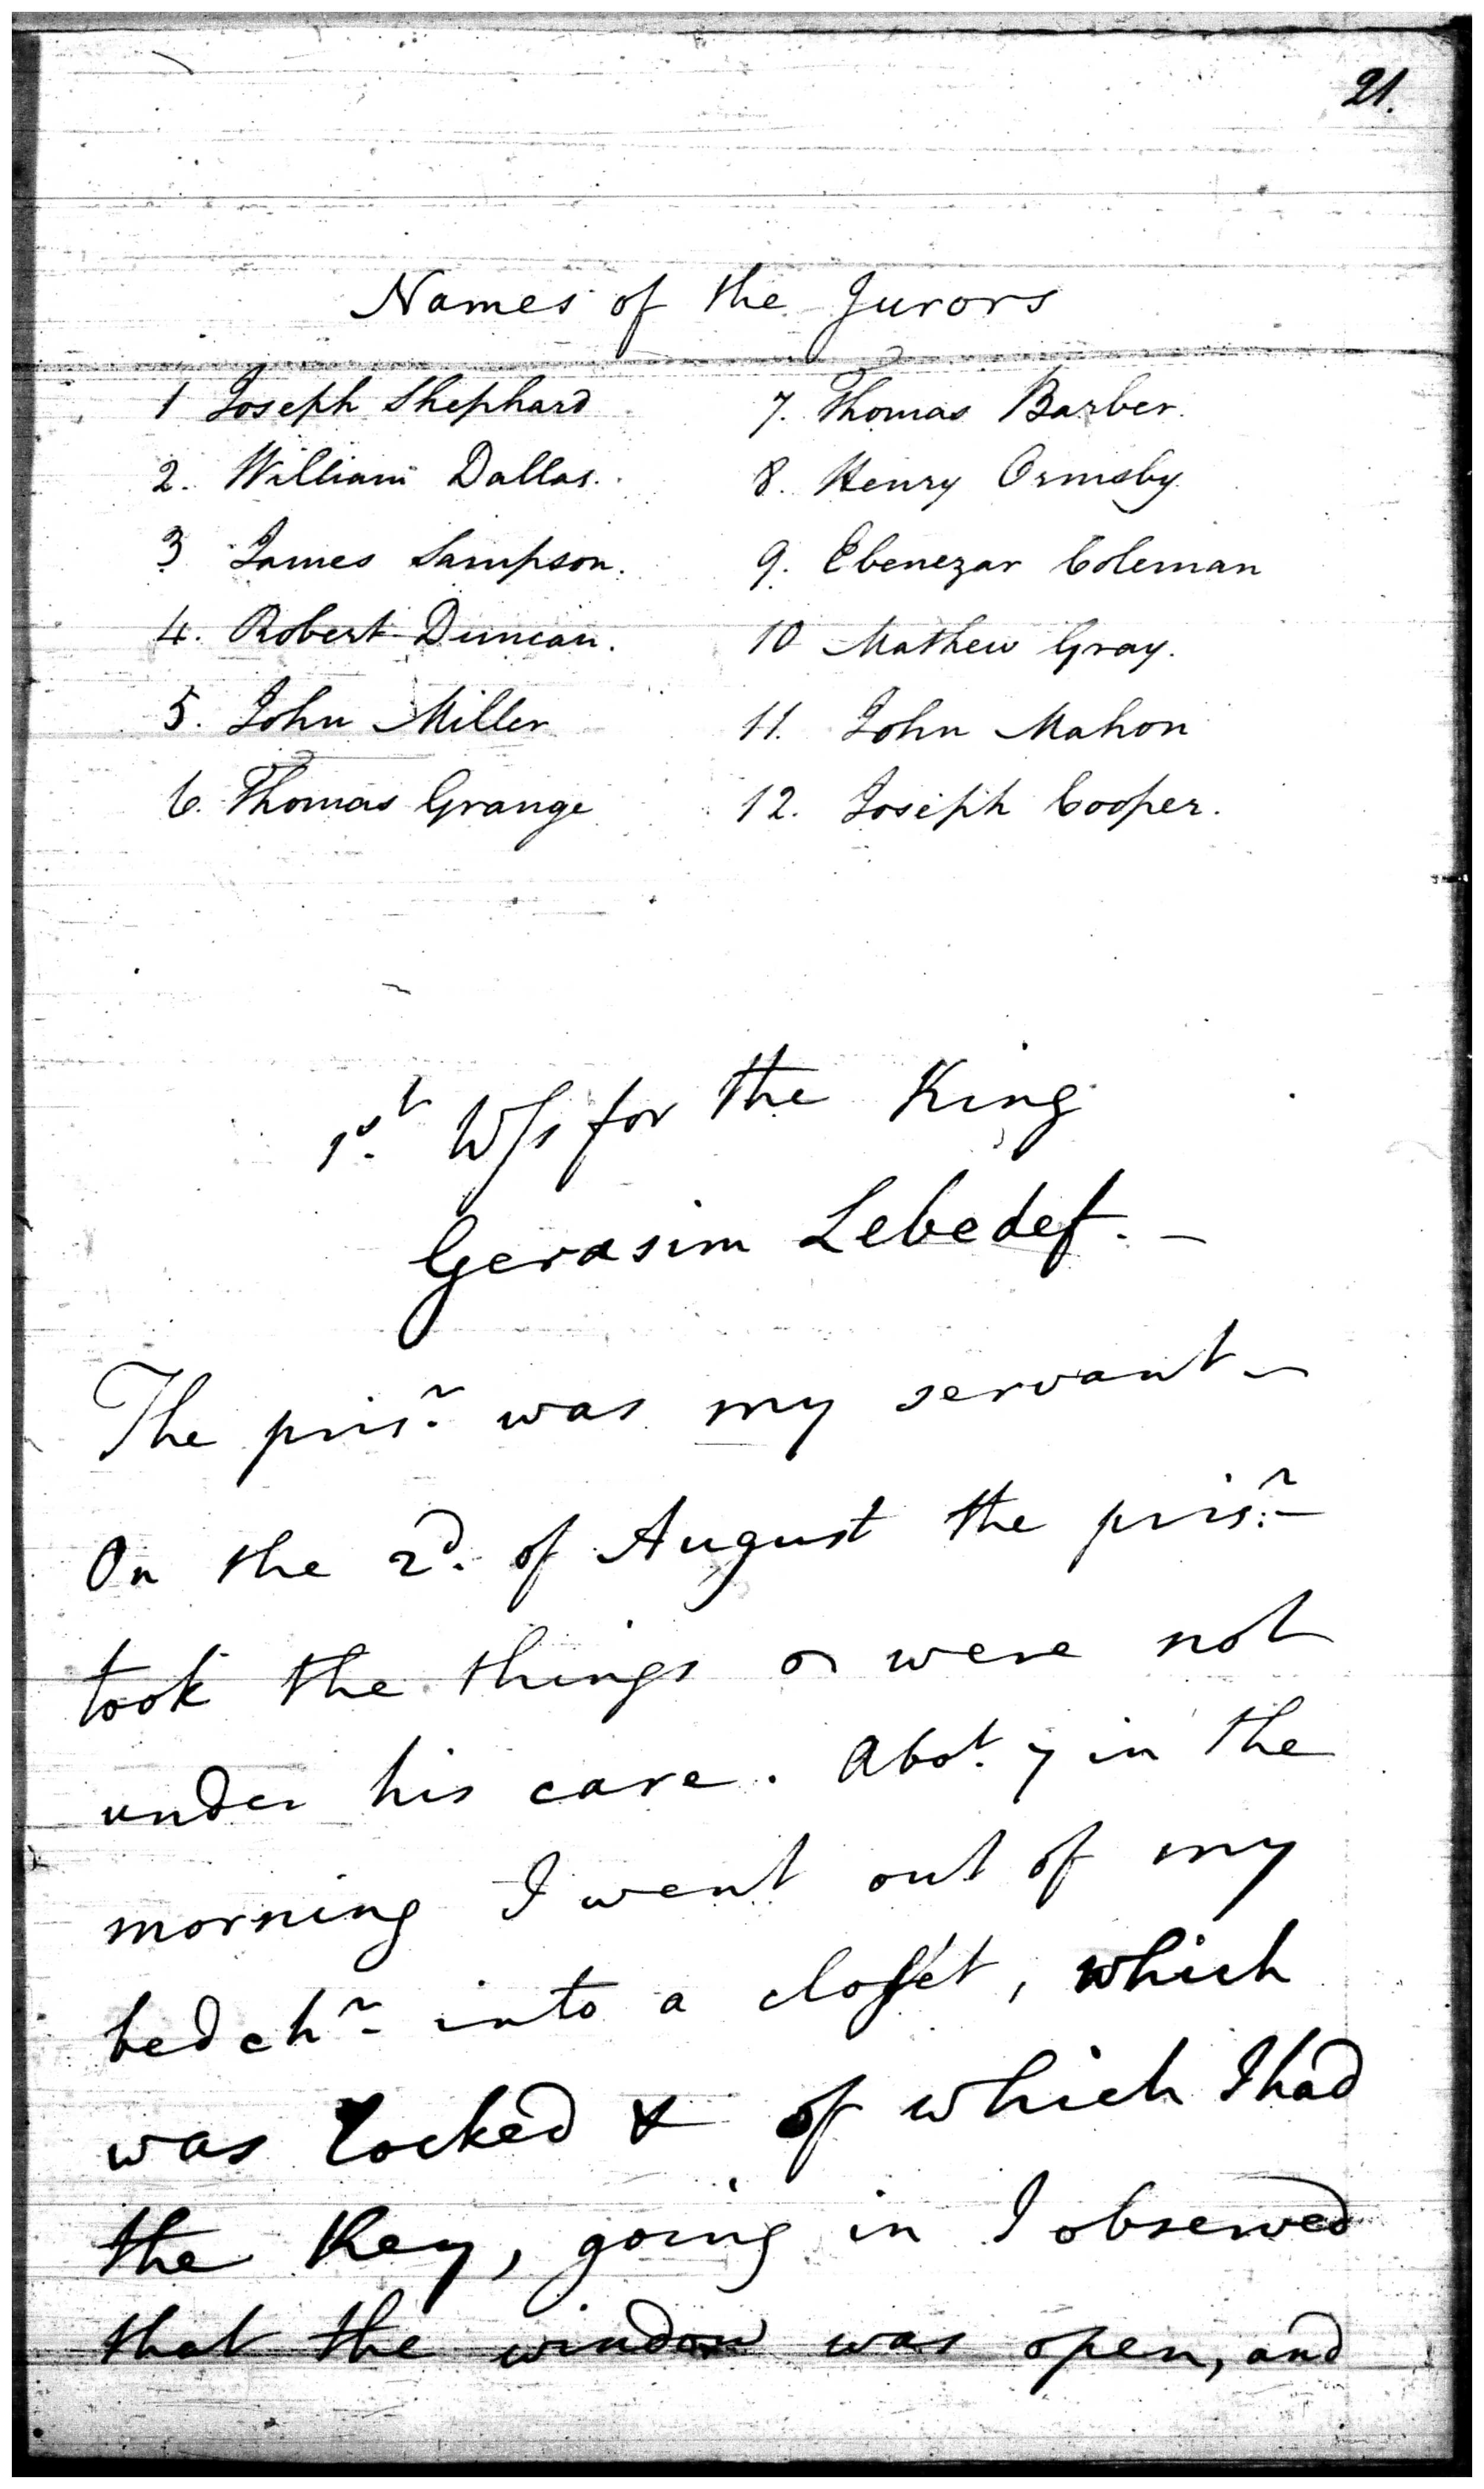 21.
Names of the Jurors
1 Joseph Shephard
2. William Dallas.
3 James Sampson.
4. Robert Duncan.
5. John Miller
6. Thomas Grange
7. Thomas Barber.
8. Henry Ormsby.
9. Ebenezar Coleman
10 Mathew Gray.
11. John Mahon
12. Joseph Cooper.
1st. W/s for the King
Gerasim Lebedef. –
The prisr. was my servant –
On the 2d. of August the prisr. –
took the things & were not
under his care. Abot. 7 in the
morning I went out of my
bed chr. into a closset, which
was locked & of which I had
the Key, going in I observed
that the window was open, and